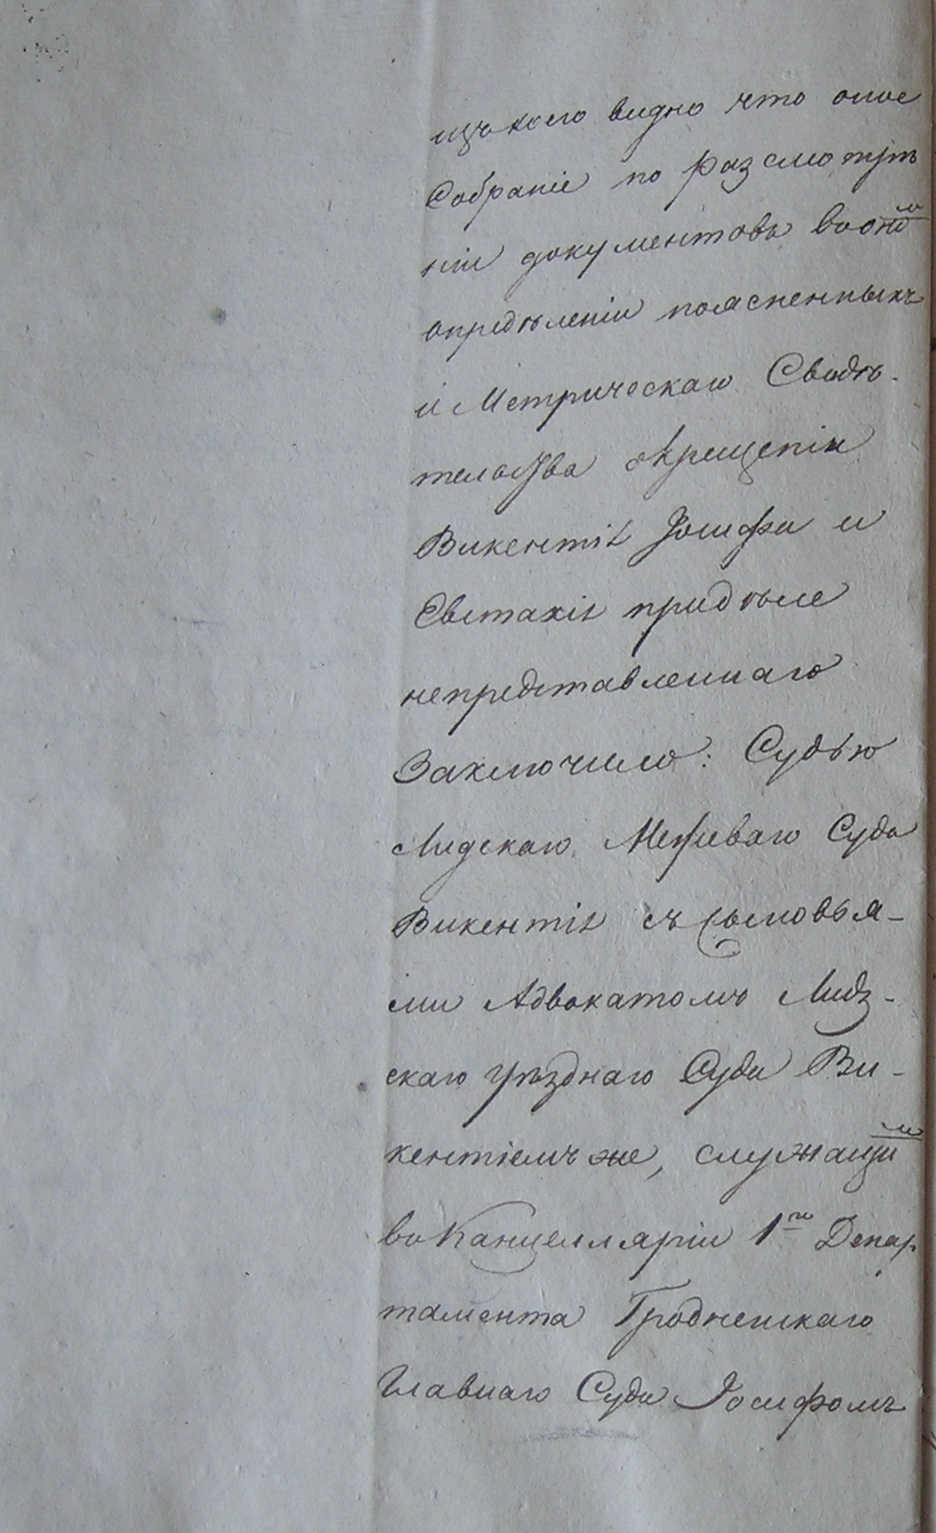 изъ коего видно что оное
Собраніе по разсмотрѣ
ніи документовъ во ономъ
опредѣленіи поясненныхъ
и Метрическаго Свидѣ-
тельства о крещеніи
Викентія Іосифа и
Евстахія при дѣле
непредставленнаго
Заключило: Судью
Лидскаго Межеваго Суда
Викентія съ сыновья-
ми Адвокатомъ Лидз-
скаго уѣзднаго Суда Ви-
кентіемъ же, служащимъ
во Канцелляріи 1го Депар
тамента Гродненскаго
Главнаго Суда Іосифомъ